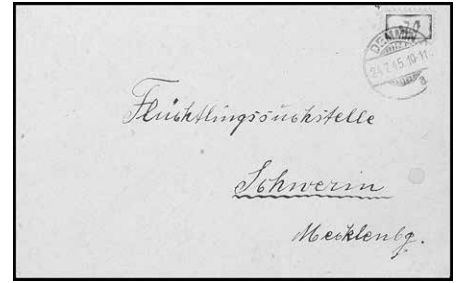 DEMMIN
24.7.45.10-11
a
Flüchtlingssuchstelle
Schwerin
Mecklenbg.